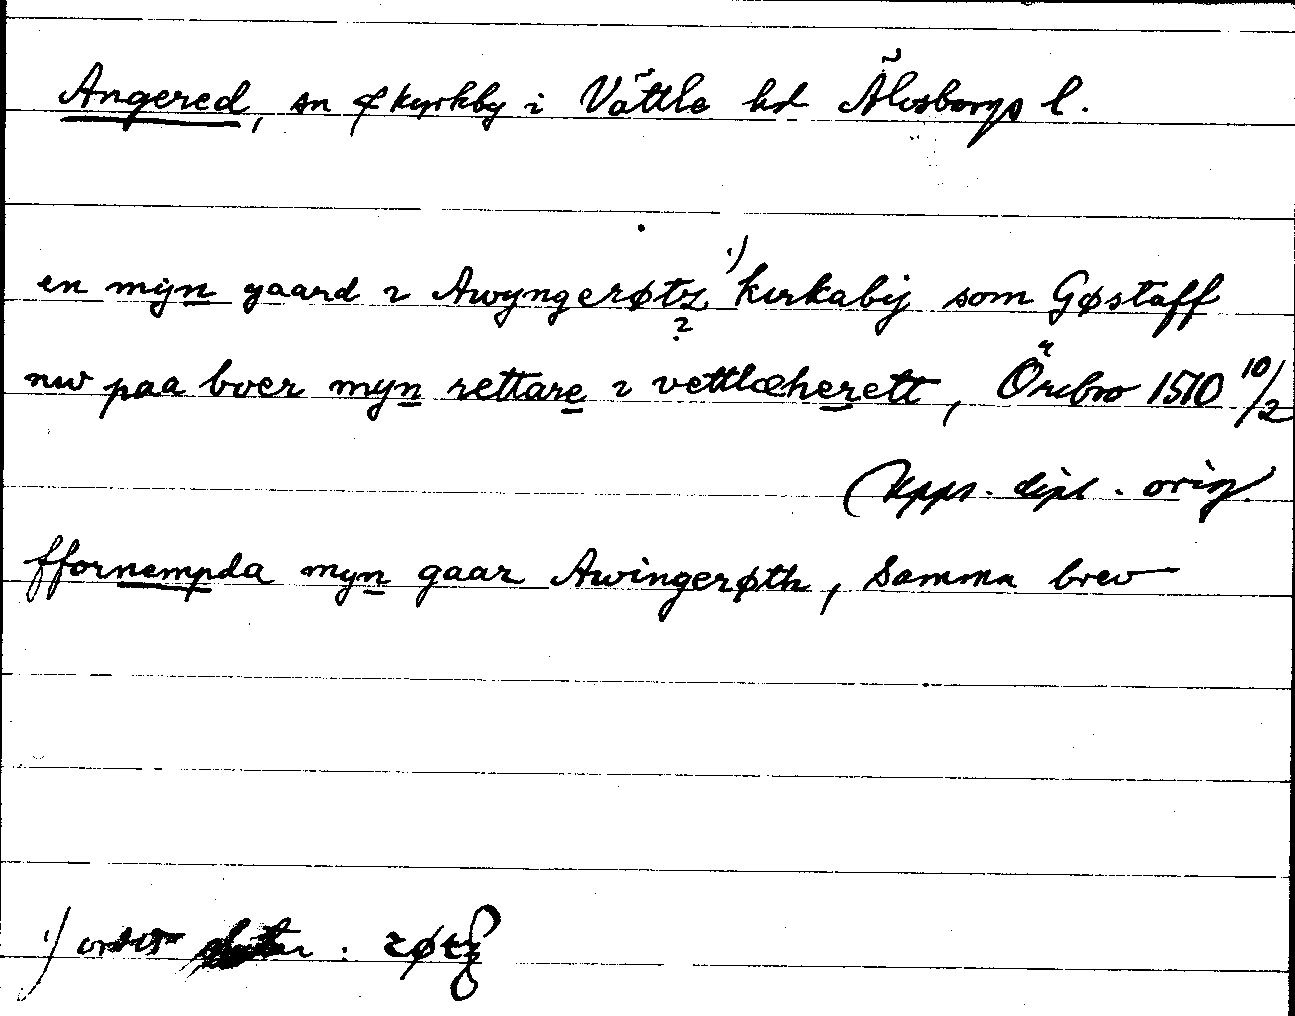 Angered, sn & kyrkby i Vättle hd Älvsborgs l.
en mijn gaard i Awyngerøtz ¹) kirkabij som Gøstaff
?
nw paa boer myn rettare i vettlæherett, Örebro 1510 10/2
Upps. dipl. orig.
ffornempda myn gaar Awingerøth, samma brev
¹) ordet slutar : røtz